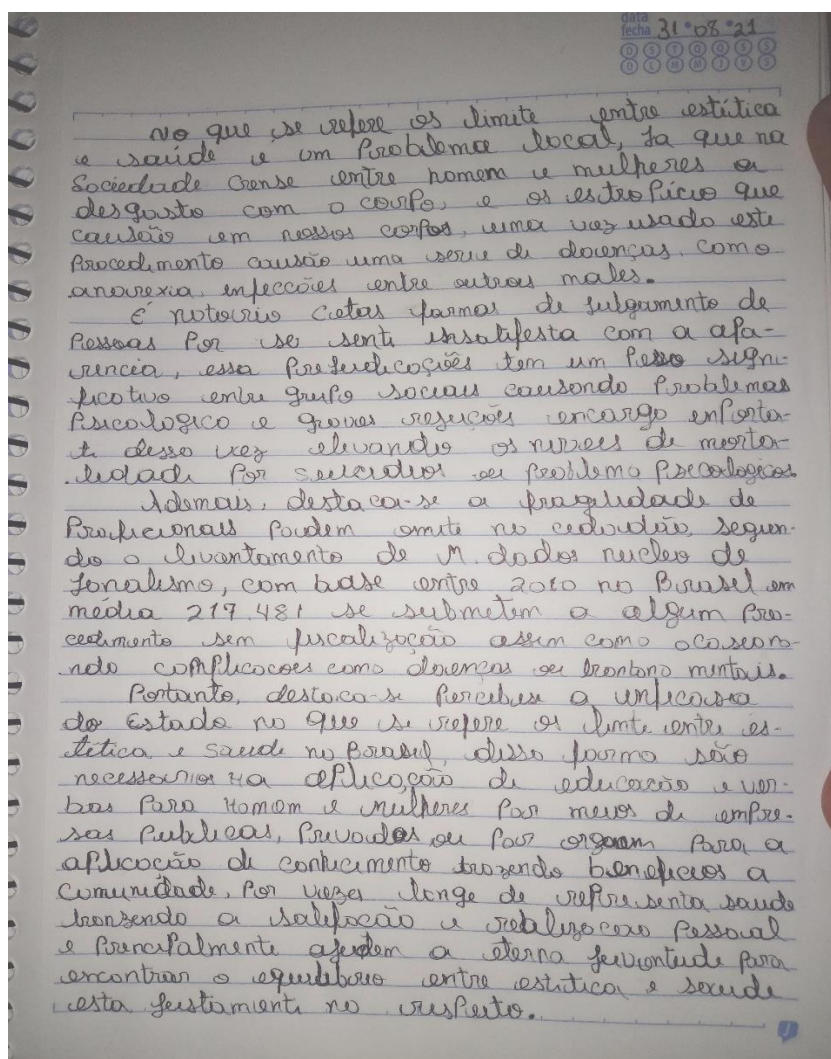 data
fecha 31·08·21
D S T Q Q S S
D L M M J V S
No que se refere os limite entre estítica
e saúde e um Problema local, Ja que na
Sociedade Crense entre homem e mulheres a
desgosto com o corpo, e os estropício que
causão em nossos corpos, uma vez usado este
Procedimento causão uma serie de doenças, como
anorexia, infecções entre outros males.
É notorio cetas formas de julgamento de
Pessoas Por se senti insatifesta com a apa-
rencia, essa Prejudicações tem um Peso signi-
ficativo entre grupo sociais causando Problemas
Psicologico e graves rejeições encargo
desso vez elevando os niveis de morta-
lidade Por suicidios ou problema Psicologicos.
Ademais, destaca-se a fragilidade de
Proficionais Poudem omite no segun-
do o levantamento de M. dados nucleo de
Jonalismo, com base entre 2010 no Brasil em
média 217.481 se submetem a algum Pro-
cedimento sem fiscalização assim como ocasiona-
ndo complicacoes como doenças ou mentais.
Portanto, destaca-se Percebese a
do Estado no que se refere os limte entre es-
tetica e saude no Brasil, disso forma são
necessarios Ha aplicação de educação e ver-
bas Para Homem e mulheres Por meios de empre-
sas Publicas, Privados ou Por orgaom Para a
aplicação de conhecimento trazendo beneficios a
Comunidade, Por vezes longe de represenita saude
tronzendo a satifacão e Pessoal
e Principalmente ajudem a eterna juventude Para
encontrar o equilibrio entre estitica e saude
esta justamente no respeito.